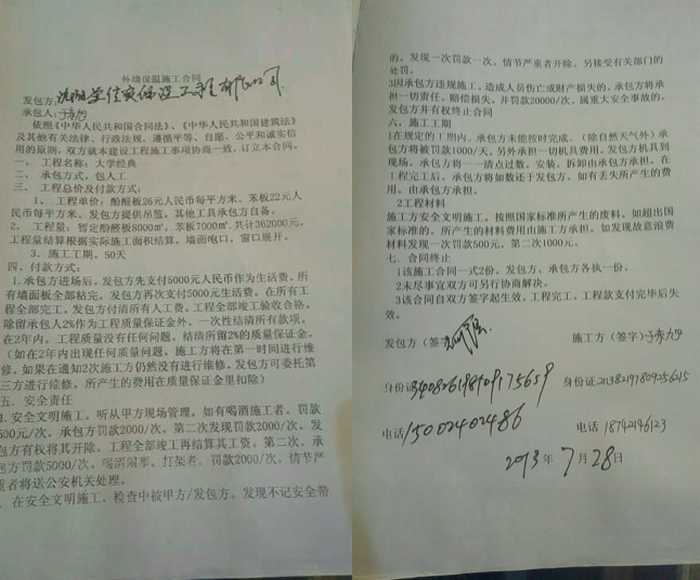 外墙保温施工合同
发包方:沈阳 工程有限公司
承包人:于
依照《中华人民共和国合同法》、《中华人民共和国建筑法》
及其他有关法律、行政法规、遵循平等、自愿、公平和诚实信
用的原则,双方就本建设工程施工事项协商一致,订立本合同。
一、 工程名称:大学经典
二、 承包方式:包人工
三、 工程总价及付款方式:
1、工程单价:酚醛板26元人民币每平方米、苯板22元人
民币每平方米、发包方提供吊篮,其他工具承包方自备。
2、 工程量:暂定酚醛板8000㎡、苯板7000㎡,共计362000元,
工程量结算根据实际施工面积结算,墙面咆口,窗口展开。
3、施工工期、50天
四、付款方式:
1.承包方进场后,发包方先支付5000元人民币作为生活费。所
有墙面板全部粘完,发包方再次支付5000元生活费。在所有工
程全部完工,发包方付清所有人工费。工程全部竣工验收合格,
除留承包人2%作为工程质量保证金外、一次性结清所有款项。
在2年内,工程质量没有任何问题,结清所留2%的质量保证金。
(如在2年内出现任何质量问题,施工方将在第一时间进行维
修。如果在通知2次施工方仍然没有进行维修,发包方可委托第
三方进行维修,所产生的费用在质量保证金里扣除)
五、安全责任
1.安全文明施工,听从甲方现场管理。如有喝酒施工者,罚款
500元/次。承包方罚款2000/次。第二次发现罚款2000/次。发
包方有权将其开除。工程全部竣工再结算其工资。第二次,承
包方罚款5000/次。喝酒闹事、打架者,罚款2000/次,情节严
重者将送公安机关处理。
、在安全文明施工,检查中被甲方/发包方,发现不记安全带
的,发现一次罚款一次,情节严重者开除,另接受有关部门的
处罚。
3因承包方违规施工,造成人员伤亡或财产损失的,承包方将承
担一切责任,赔偿损失,并罚款20000/次。属重大安全事故的,
发包方并有权终止合同
六、施工工期
1在规定的工期内,承包方未能按时完成,(除自然天气外)承
包方将被罚款1000/天,另外承担一切机具费用。发包方机具到
现场,承包方将一一清点过数。安装、拆卸由承包方承担。在
工程完工后,承包方将如数还于发包方,如有丢失所产生的费
用,由承包方承担。
2工程材料
施工方安全文明施工,按照国家标准所产生的废料,如超出国
家标准的,所产生的材料费用由施工方承担。如发现故意浪费
材料发现一次罚款500元,第二次1000元。
七、合同终止
1该施工合同一式2份,发包方、承包方各执一份。
2未尽事宜双方可另行协商解决。
3该合同自双方签字起生效,工程完工,工程款支付完毕后失
效。
发包方(签字) 施工方(签字)于
身份证340826198109175659 身份证21138219780925615
电话15002402486 电话 18742196123
2013年7月28日